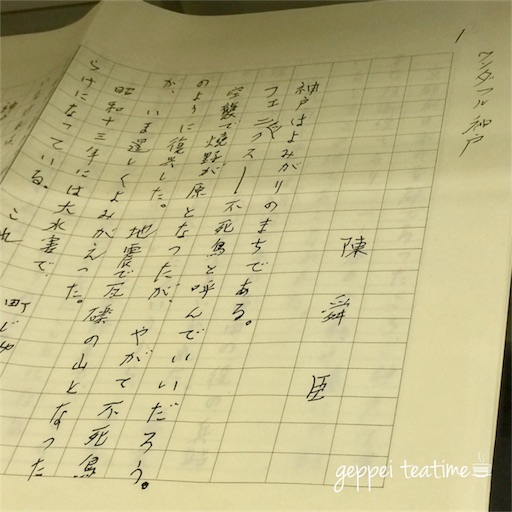 1
ワンダフル神戸
陳舜臣
神戸はよみがりのまちである。
フェニックス―不死鳥と呼んでいいだろう。
空襲で焼野が原となったが、やがて不死鳥
のように復興した。地震で瓦礫の山となった
が、いま逞しくよみがえった。
昭和十三年には大水害で、町じゅ
らけになっている。これ
geppei teatime